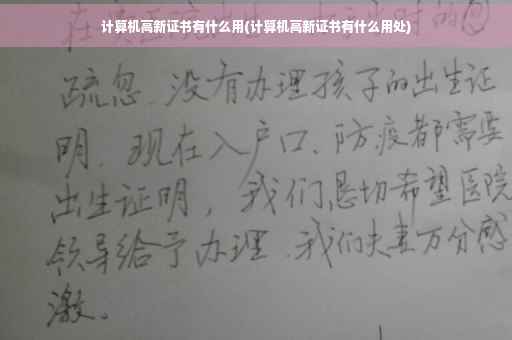 计算机高新证书有什么用(计算机高新证书有什么用处)
疏忽、没有办理孩子的出生证
明、现在入户口、防疫都需要
出生证明，我们恳切希望医院
领导给予办理、我们夫妻万分感
激。